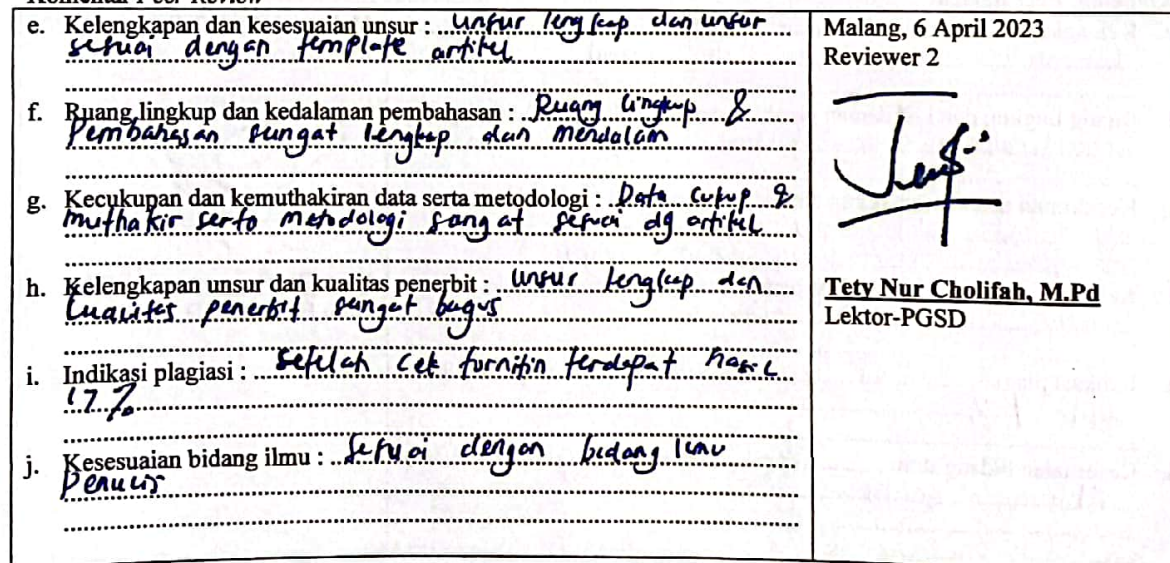 Komentar Peer Review
e. Kelengkapan dan kesesuaian unsur : unsur lengkap dan unsur
sesuai dengan template artikel
f. Ruang lingkup dan kedalaman pembahasan : Ruang lingkup &
Pembahasan sangat lengkap dan mendalam
g. Kecukupan dan kemuthakiran data serta metodologi : Data cukup &
muthakir serta metodologi sangat sesuai dg artikel
h. Kelengkapan unsur dan kualitas penerbit : unsur lengkap dan
kualitas penerbit sangat bagus
i. Indikasi plagiasi : setelah cek turnitin terdapat hasil
17 %
j. Kesesuaian bidang ilmu : sesuai dengan bidang ilmu
Penulis
Malang, 6 April 2023
Reviewer 2
Tety Nur Cholifah, M.Pd
Lektor-PGSD